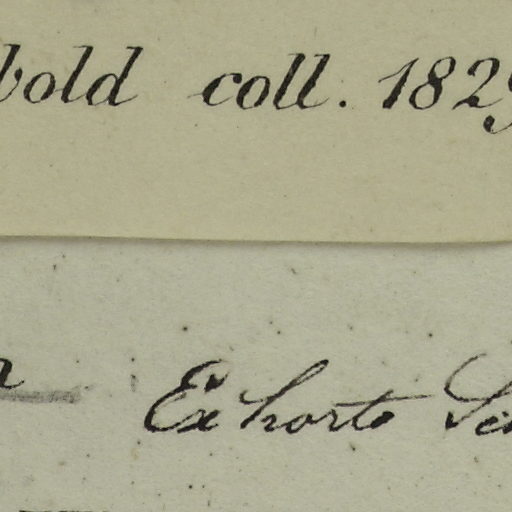 bold coll. 1829
Ex horto